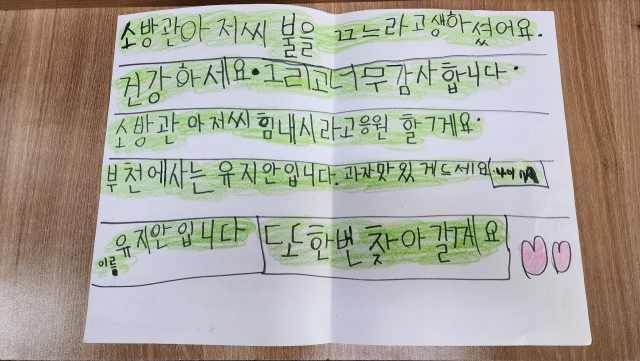 소방관아저씨 불을 끄느라고생하셨어요.
건강하세요. 그리고너무감사합니다.
소방관 아저씨 힘내시라고응원 할게요.
부천에사는 유지안입니다. 과자맛있 게드세요
이름 유지안입니다 또한번 찾아갈게요